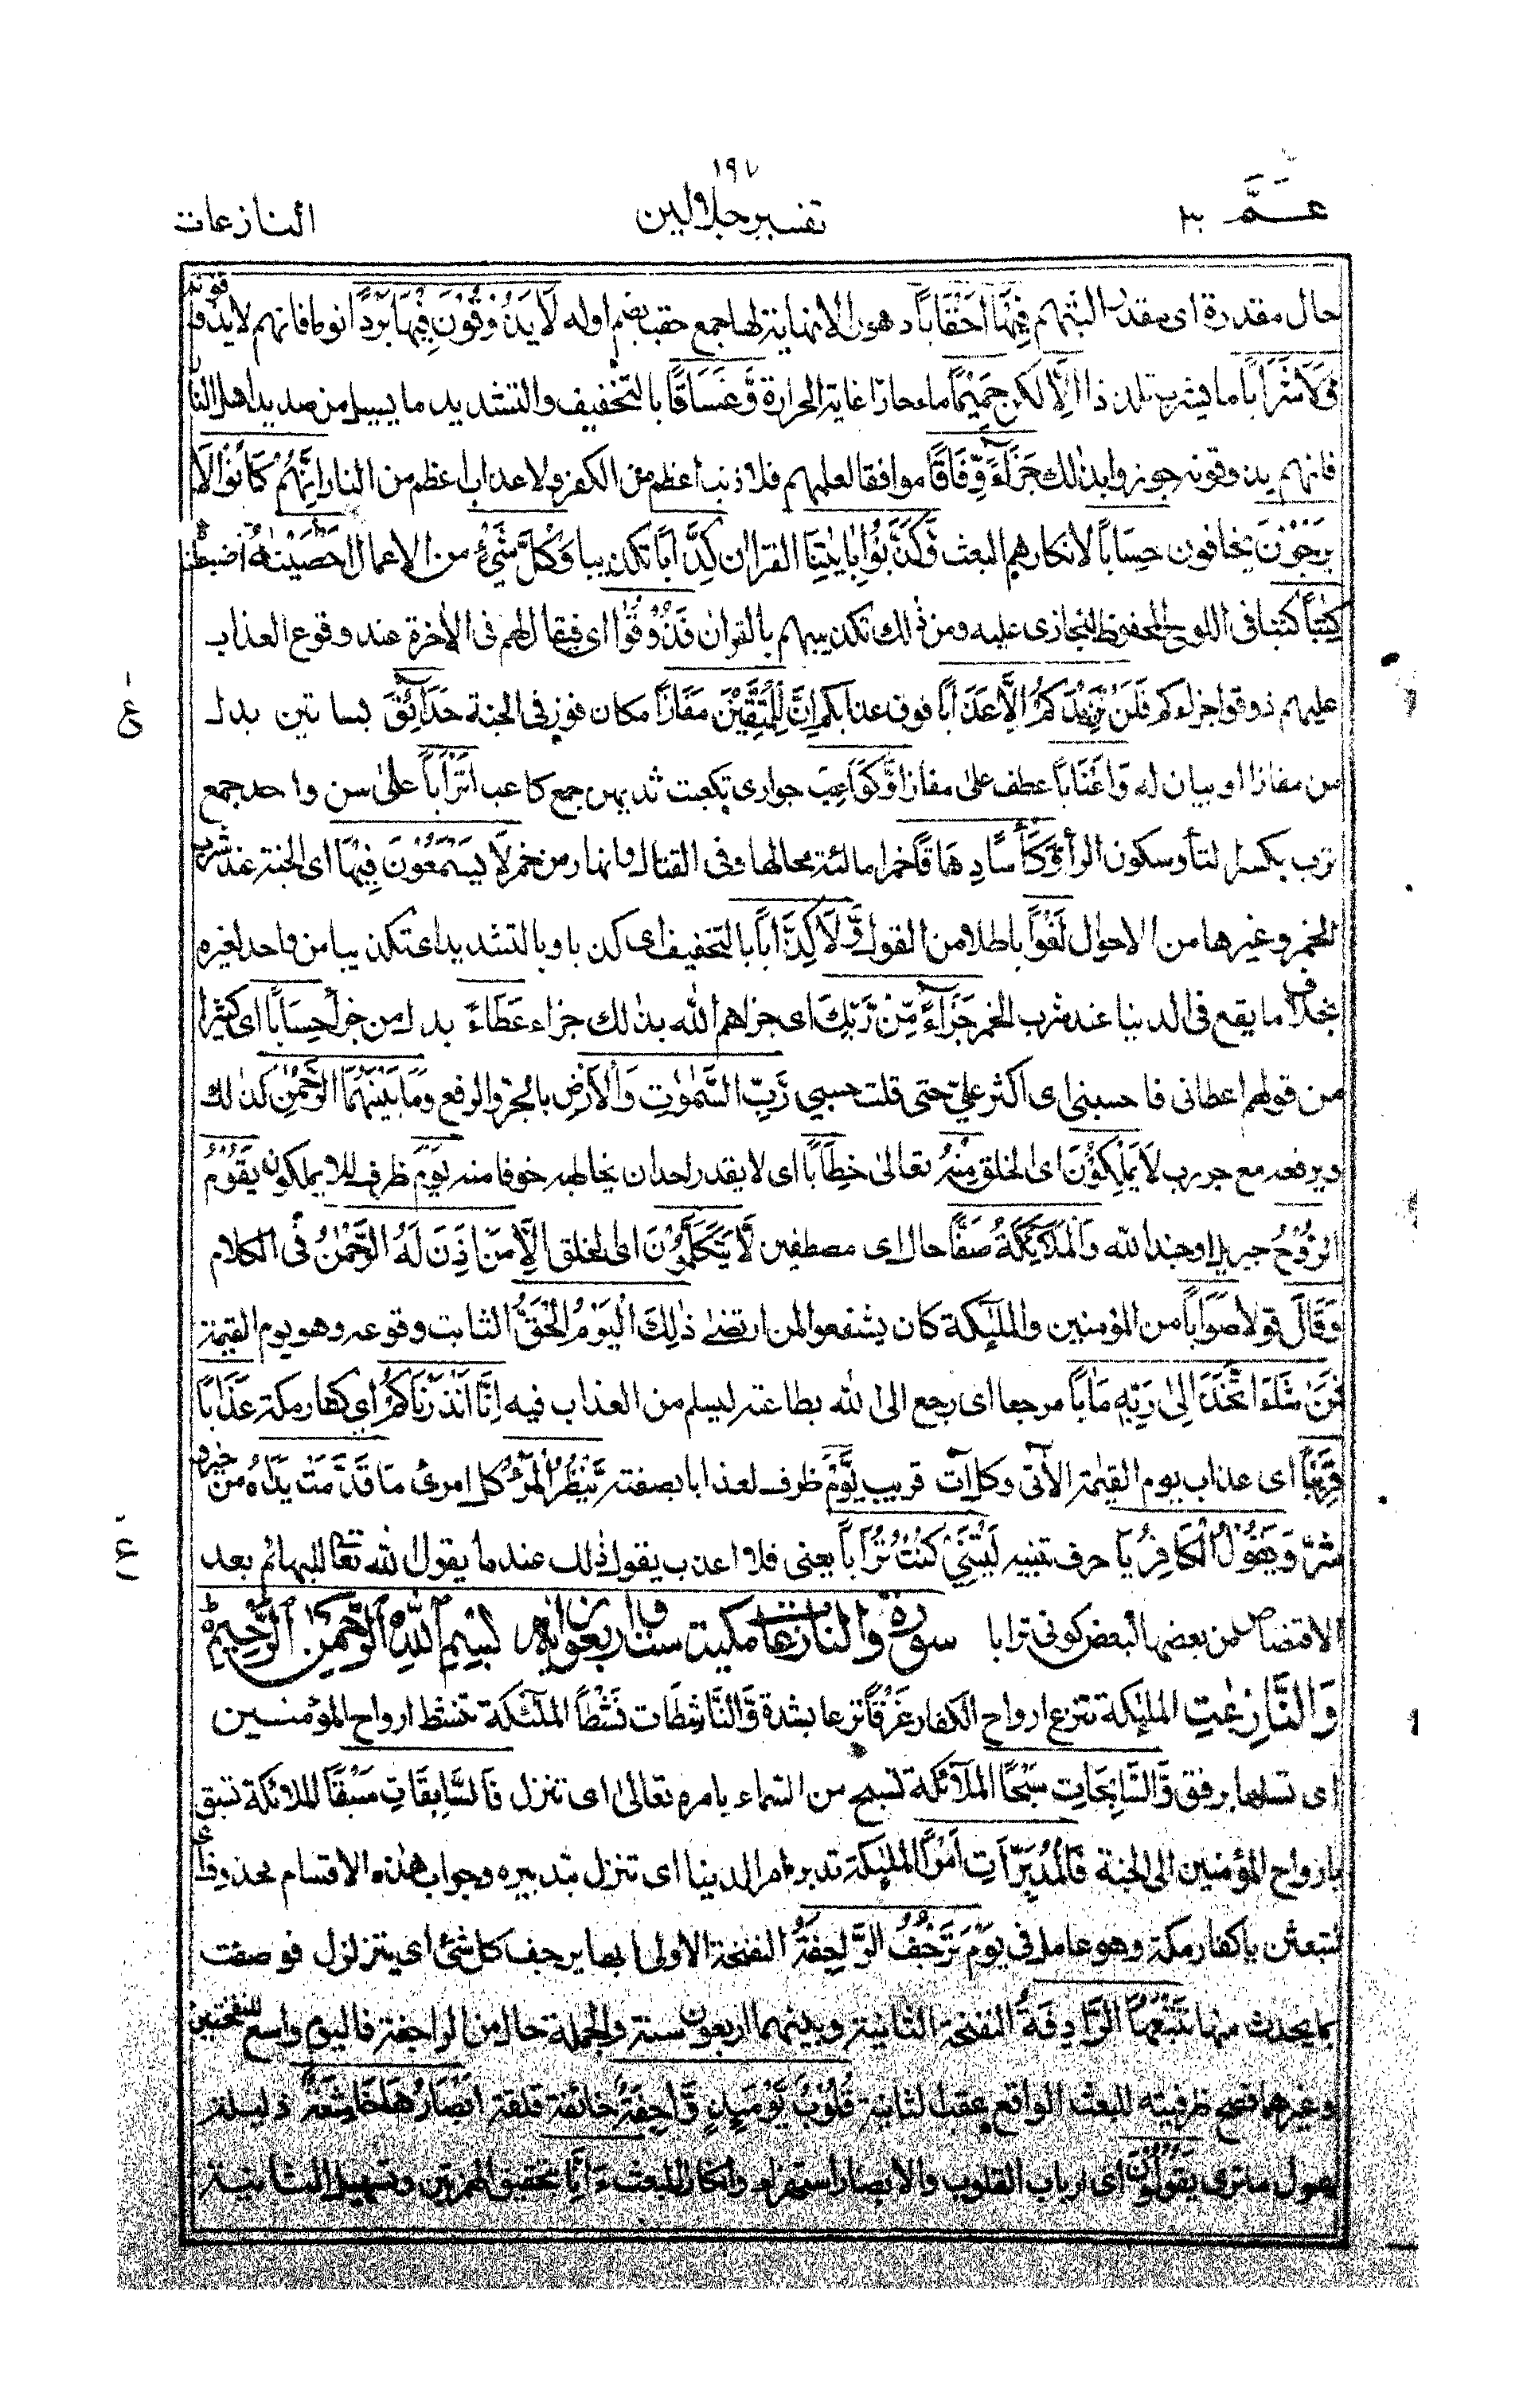 ١٩٧
عَمَّ ٣٠
تفسير جلالين
النازعات
حال مقدرة اى مقدرا لبثهم فِيْهَا اَحْقَابًا دهورا لا نهاية لها جمع حقب بضم اوله لَا يَذُوْقُوْنَ فِيْهَا بَرْدًا نوما فانهم لا يذوقونه
وَلَا شَرَابًا ما يشرب تلذذا اِلَّا لكن حَمِيْمًا ماء حارا غاية الحرارة وَّغَسَاقًا بالتخفيف والتشديد ما يسيل من صديد اهل النار
فانهم يذوقونه جوزوا بذلك جَزَآءً وِّفَاقًا موافقا لعملهم فلا ذنب اعظم من الكفر ولا عذاب اعظم من النار اِنَّهُمْ كَانُوْا لَا
يَرْجُوْنَ يخافون حِسَابًا لانكارهم البعث وَّكَذَّبُوْا بِاٰيٰتِنَا القراٰن كِذَّابًا تكذيبا وَكُلَّ شَيْءٍ من الاعمال اَحْصَيْنٰهُ ضبطناه
كِتٰبًا كتبا فى اللوح المحفوظ لنجازى عليه ومن ذلك تكذيبهم بالقراٰن فَذُوْقُوْا اى فيقال لهم فى الاٰخرة عند وقوع العذاب
عليهم ذوقوا جزاءكم فَلَنْ نَّزِيْدَكُمْ اِلَّا عَذَابًا فوق عذابكم اِنَّ لِلْمُتَّقِيْنَ مَفَازًا مكان فوز فى الجنة حَدَآئِقَ بساتين بدل
ع
من مفازا او بيان له وَاَعْنَابًا عطف على مفازا وَّكَوَاعِبَ جوارى تكعبت ثديهن جمع كاعب اَتْرَابًا على سن واحد جمع
ترب بكسر التاء وسكون الراء وَّكَأْسًا دِهَاقًا خمرا مالئة محالها وفى القتال وانهار من خمر لَا يَسْمَعُوْنَ فِيْهَا اى الجنة عند شرب
الخمر وغيرها من الاحوال لَغْوًا باطلا من القول وَّلَا كِذَّابًا بالتخفيف اى كذبا وبالتشديد اى تكذيبا من واحد لغيره
بخلاف ما يقع فى الدنيا عند شرب الخمر جَزَآءً مِّنْ رَّبِّكَ اى جزاهم الله بذلك جزاء عَطَآءً بدل من جزاء حِسَابًا اى كثيرا
من قولهم اعطانى فاحسبنى اى اكثر علىّ حتى قلت حسبى رَّبِّ السَّمٰوٰتِ وَالْاَرْضِ بالجر والرفع وَمَا بَيْنَهُمَا الرَّحْمٰنِ كذلك
وبرفعه مع جر رب لَا يَمْلِكُوْنَ اى الخلق مِنْهُ تعالى خِطَابًا اى لا يقدر احد ان يخاطبه خوفا منه يَوْمَ ظرف للا يملكون يَقُوْمُ
الرُّوْحُ جبريل او جند الله وَالْمَلٰٓئِكَةُ صَفًّا حال اى مصطفين لَّا يَتَكَلَّمُوْنَ اى الخلق اِلَّا مَنْ اَذِنَ لَهُ الرَّحْمٰنُ فى الكلام
وَقَالَ قولا صَوَابًا من المؤمنين والملٰئكة كان يشفعوا لمن ارتضى ذٰلِكَ الْيَوْمُ الْحَقُّ الثابت وقوعه وهو يوم القيٰمة
فَمَنْ شَآءَ اتَّخَذَ اِلٰى رَبِّهٖ مَاٰبًا مرجعا اى رجع الى الله بطاعته ليسلم من العذاب فيه اِنَّا اَنْذَرْنَاكُمْ اى كفار مكة عَذَابًا
قَرِيْبًا اى عذاب يوم القيٰمة الاٰتى وكل اٰت قريب يَّوْمَ ظرف لعذابا بصفته يَنْظُرُ الْمَرْءُ كل امرئ مَا قَدَّمَتْ يَدَاهُ من خير و
شر وَيَقُوْلُ الْكَافِرُ يَا حرف تنبيه لَيْتَنِيْ كُنْتُ تُرَابًا يعنى فلا اعذب يقول ذلك عند ما يقول الله تعالى للبهائم بعد
ع
الاقتصاص من بعضها لبعض كونى ترابا سورة والنازعات مكية ست واربعون اية بِسْمِ اللهِ الرَّحْمٰنِ الرَّحِيْمِ
وَالنَّازِعٰتِ الملٰئكة تنزع ارواح الكفار غَرْقًا نزعا بشدة وَّالنَّاشِطَات نَشْطًا الملٰئكة تنشط ارواح المؤمنين
اى تسلها برفق وَّالسَّابِحَاتِ سَبْحًا الملاٰئكة تسبح من السماء بامره تعالى اى تنزل فَالسَّابِقَاتِ سَبْقًا الملائكة تسبق
بارواح المؤمنين الى الجنة فَالْمُدَبِّرَاتِ اَمْرًا الملٰئكة تدبر امر الدنيا اى تنزل بتدبيره وجواب هذه الاقسام محذوف اى
لتبعثن يا كفار مكة وهو عامل فى يَوْمَ تَرْجُفُ الرَّاجِفَةُ النفخة الاولى بها يرجف كل شئ اى يتزلزل فوصفت
بما يحدث منها تَتْبَعُهَا الرَّادِفَةُ النفخة الثانية وبينهما اربعون سنة والجملة حال من الراجفة فاليوم واسع للنفختين
وغيرهما فصح ظرفيته للبعث الواقع عقب الثانية قُلُوْبٌ يَّوْمَئِذٍ وَّاجِفَةٌ خائفة قلقة اَبْصَارُهَا خَاشِعَةٌ ذليلة
لهول ما ترى يَقُوْلُوْنَ اى ارباب القلوب والابصار استهزاء وانكارا للبعث ءَاِنَّا بتحقيق الهمزتين وتسهيل الثانية